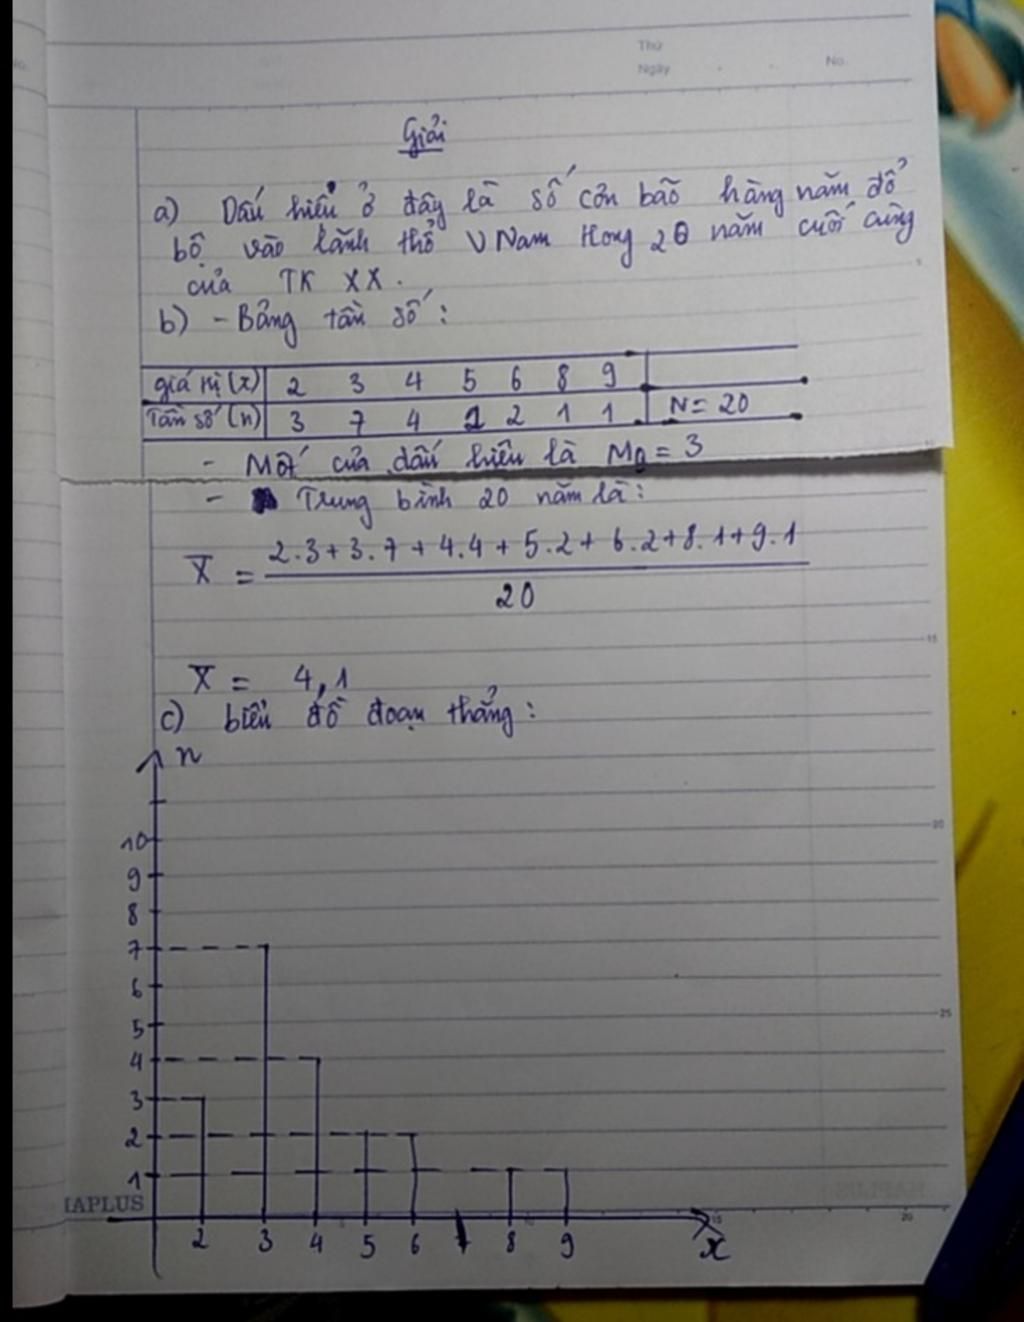 Thứ
Ngày
No.
Giải
a) Dấu hiệu ở đây là số cơn bão hàng năm đổ
bộ vào lãnh thổ V Nam trong 20 năm cuối cùng
của TK XX.
b) - Bảng tần số :
giá trị (x) 2 3 4 5 6 8 9
Tần số (n) 3 7 4 2 2 1 1 N = 20
- Mốt của dấu hiệu là M0 = 3
- Trung bình 20 năm là :
X̄ = (2.3 + 3.7 + 4.4 + 5.2 + 6.2 + 8.1 + 9.1) / 20
X̄ = 4,1
c) biểu đồ đoạn thẳng :
n
10
9
8
7
6
5
4
3
2
1
HAPLUS
2 3 4 5 6 7 8 9 x
5
15
20
25
5 10 15 20